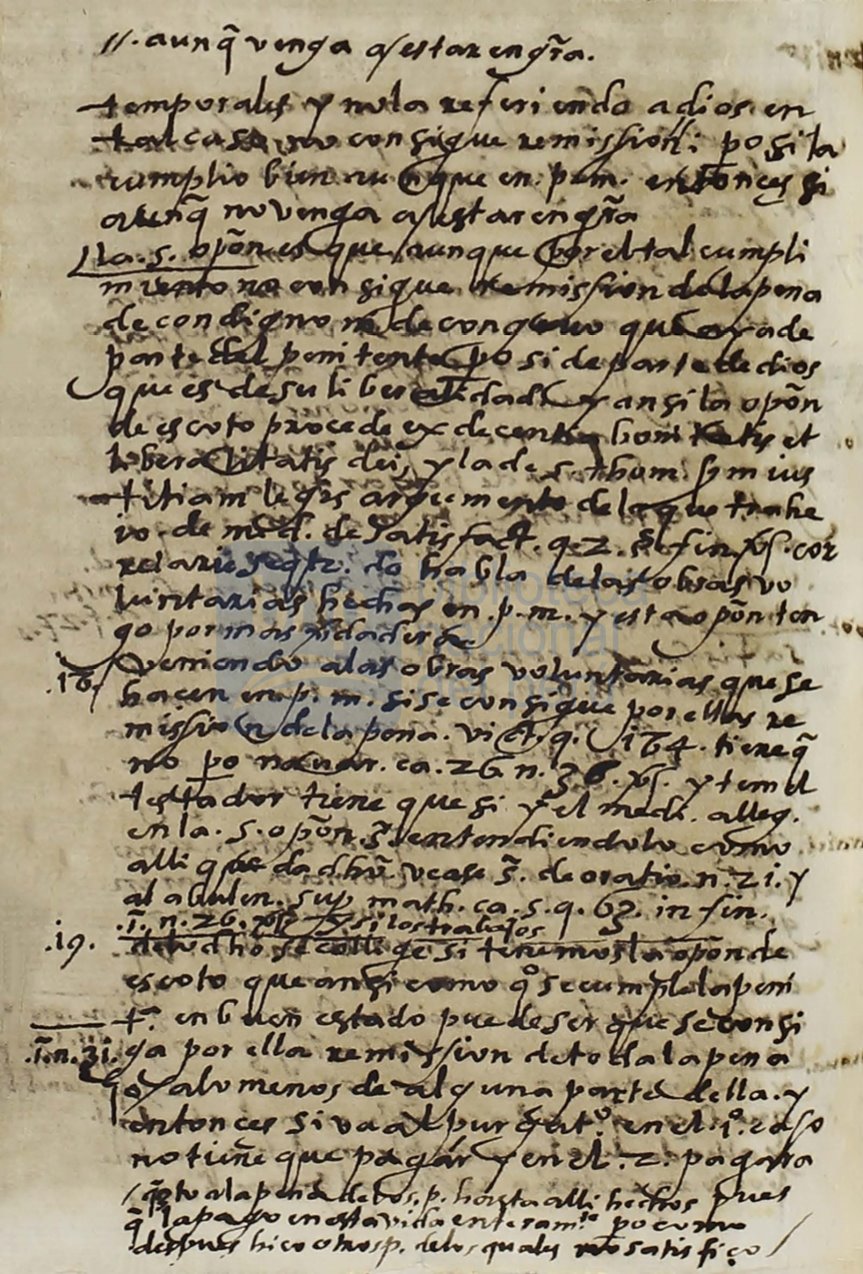 //. aunq̃ venga a estar en gr̃a.
temporales y no la refiriendo a dios en
tal caso no consigue remission: po si la
cumplio bien aunque en . p. m. entonces si
aunq̃ no venga a estar en gr̃a
la .s. opõn es que aunque por el tal cumpli
miento no consigue remission de la pena
de condigno ni de congruo que aya de
parte del penitente po si de parte de dios
que es de su liberalidad y ansi la opõn
de escoto procede ex decentia bonitatis et
liberalitatis dei, y la de s. thom. s̃m ius
titiam legis argumento de lo que trahe
io. de med. de satisfact. q. 2. § fin.
relarie seqtr. do habla de las obras vo
luntarias hechas en . p. m. y esta opõn ten
go por mas
.18. Veniendo a las obras voluntarias que se
hacen en p. m. si se consigue por ellas re
mission de la pena. vict. q. 164. tiene q̃
no po navar. ca. 26. n. y tem el
testador tiene que si y el medi. alleg.
en la .s. opõn s̃. entendiendolo como
alli queda dho. vease s̃. de oratio. n. 21. y
al abulen. sup math. ca. 5. q. in fin.
.ĩ. n. 26. si los trabajos
.19. delo dho se collige si tenemos la opõn de
escoto que ansi como q° se cumple la peni
tᵃ. en buen estado puede ser que se consi
.ĩ. n. 31. ga por ella remission de toda la pena
o alo menos de alguna parte della. y
entonces si va al purgatº. en el .1º. caso
no tiene que pagar y en el .2. pagara
q̃to a la pena de los . p. hasta alli hechos pues
q̃ la pago en esta vida enteramᵗᵉ po como
despues hiço otros p. de los quales no satisfiço /